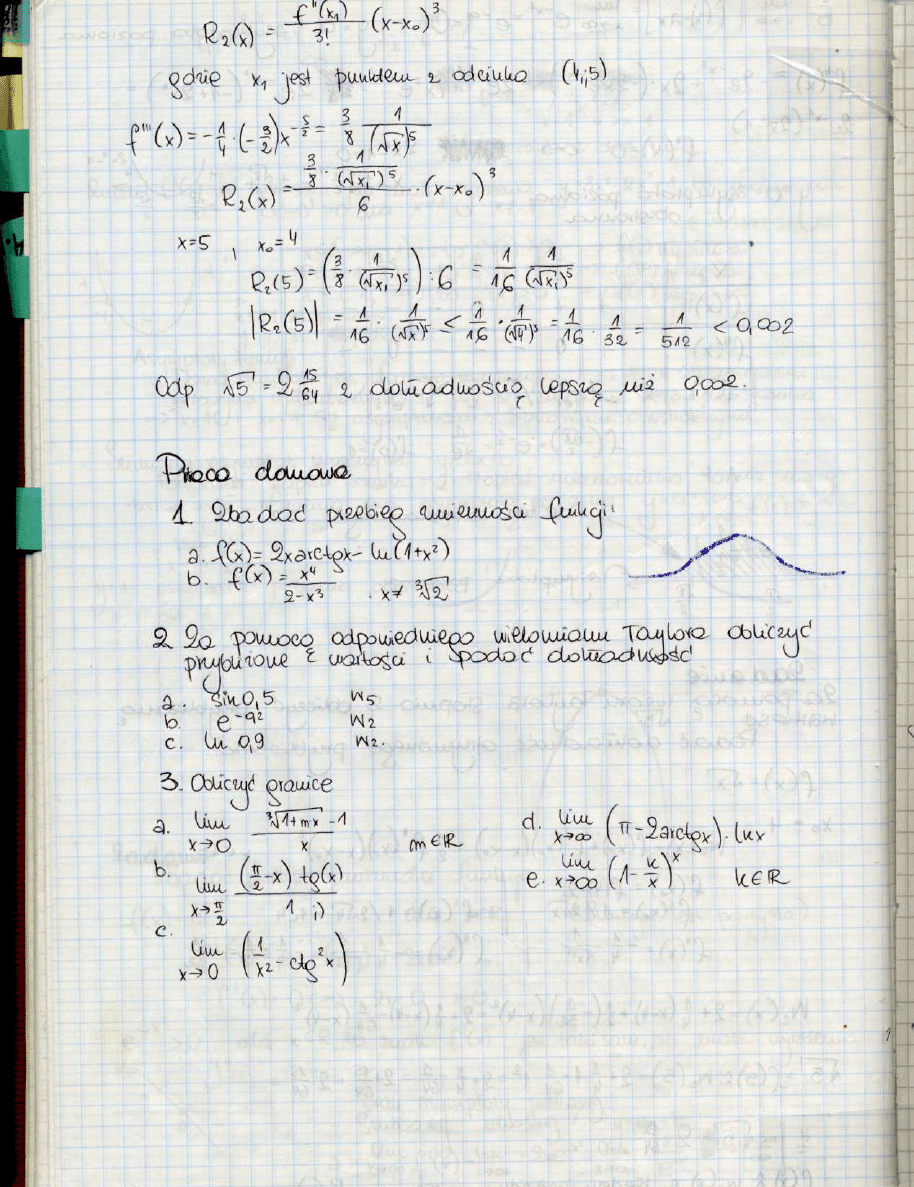 R₂(x) = f'''(x₁)/3! (x-x₀)³
gdzie x₁ jest punktem z odcinka (4,5)
f'''(x) = -1/4 · (-3/2) x^(-5/2) = 3/8 1/(√x)⁵
R₂(x) = (3/8 · 1/(√x₁)⁵)/6 · (x-x₀)³
x=5 , x₀=4
R₂(5) = (3/8 · 1/(√x₁)⁵) : 6 = 1/16 1/(√x₁)⁵
|R₂(5)| = 1/16 · 1/(√x)⁵ < 1/16 · 1/(√4)⁵ = 1/16 · 1/32 = 1/512 < 0,002
Odp √5 = 2 15/64 z dokładnością lepszą niż 0,002.
Praca domowa
1. Zbadać przebieg zmienności funkcji:
a. f(x) = 2x arctgx - ln(1+x²)
b. f(x) = x⁴/(2-x³) . x≠ ∛2
2 Za pomocą odpowiedniego wielomianu Taylora obliczyć
przybliżone wartości i podać dokładność
a. sin 0,5 W₅
b. e^(-0,2) W₂
c. ln 0,9 W₂.
3. Obliczyć granice
a. lim x→0 (∛(1+mx) -1)/x m∈R
b. lim x→π/2 ((π/2 -x) tg(x))/1 ;)
c. lim x→0 (1/x² - ctg²x)
d. lim x→∞ (π-2arctgx)·lnx
e. lim x→∞ (1-k/x)^x k∈R